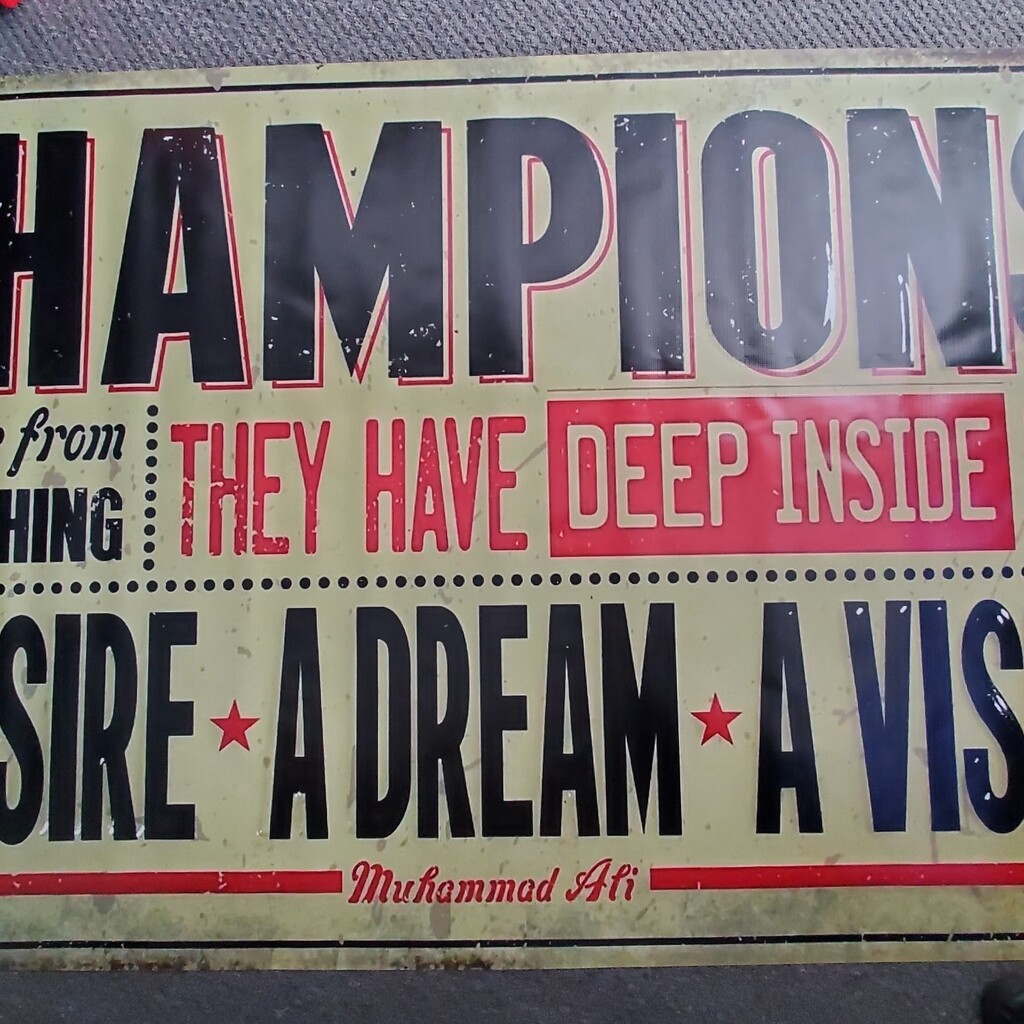 HAMPIONS
from
HING
THEY HAVE DEEP INSIDE
SIRE ★ A DREAM ★ A VIS
Muhammad Ali